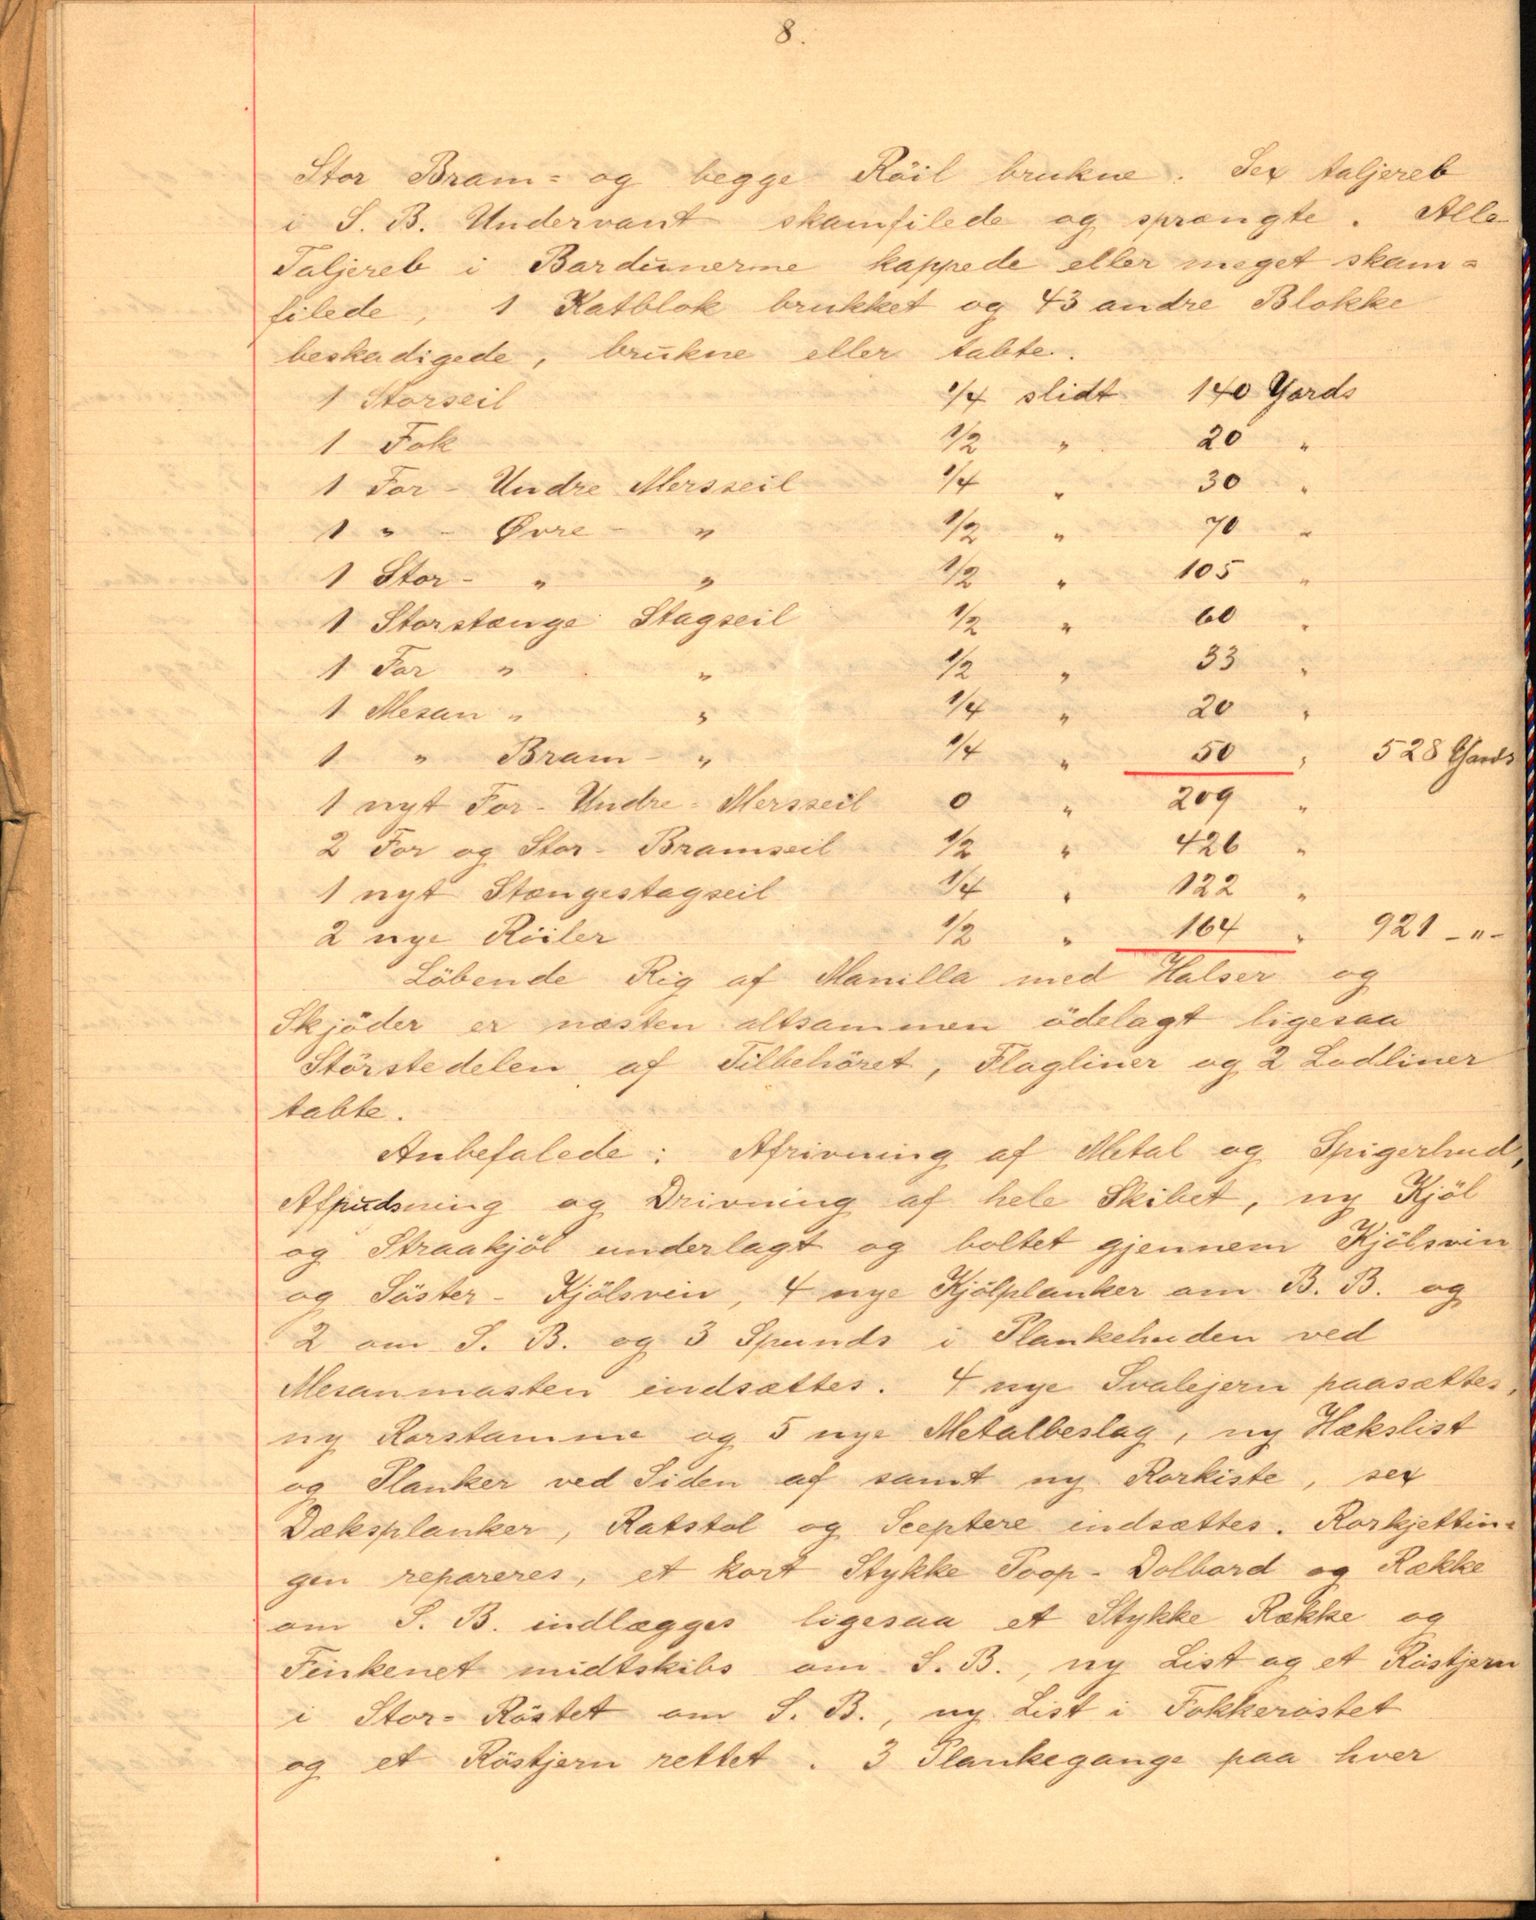 8.
Stor Bram= og begge Röil brukne. Sex taljereb
i S. B. Undervant skamfilede og sprængte. Alle
Taljereb i Bardunerne kappede eller meget skam=
filede, 1 Katblok brukket og 43 andre Blokke
beskadigede, brukne eller tabte.
1 Storseil 1/4 slidt 140 Yards
1 Fok 1/2 " 20 "
1 For - Undre Mersseil 1/4 " 30 "
1 " - Øvre - " 1/2 " 70 "
1 Stor - " " 1/2 " 105 "
1 Storstænge Stagseil 1/2 " 60 "
1 For " " 1/2 " 33 "
1 Mesan " " 1/4 " 20 "
1 " Bram - " 1/4 " 50 " 528 Yards
1 nyt For - Undre - Mersseil 0 " 209 "
2 For og Stor - Bramseil 1/2 " 426 "
1 nyt Stængestagseil 1/4 " 122 "
2 nye Röiler 1/2 " 164 " 921 - " -
Löbende Rig af Manilla med Halser og
Skjöder er næsten altsammen ödelagt ligesaa
Störstedelen af Tilbehöret, Flagliner og 2 Lodliner
tabte.
Anbefalede: Afrivning af Metal og Spigerhud,
Afpudsning og Drivning af hele Skibet, ny Kjöl
og Straakjöl underlagt og boltet gjennem Kjölsvin
og Söster - Kjölsvin, 4 nye Kjölplanker om B. B. og
2 om S. B. og 3 Spunds i Plankehuden ved
Mesanmasten indsættes. 4 nye Svalejern paasættes,
ny Rorstamme og 5 nye Metalbeslag, ny Hækslist
og Planker ved Siden af samt ny Rorkiste, sex
Dæksplanker, Ratstol og Sceptere indsættes. Rorkjettin=
gen repareres, et kort Stykke Poop - Dolbord og Række
om S. B. indlægges ligesaa et Stykke Række og
Finkenet midtskibs om S. B., ny List og et Röstjern
i Stor= Röstet om S. B., ny List i Fokkeröstet
og et Röstjern rettet. 3 Plankegange paa hver